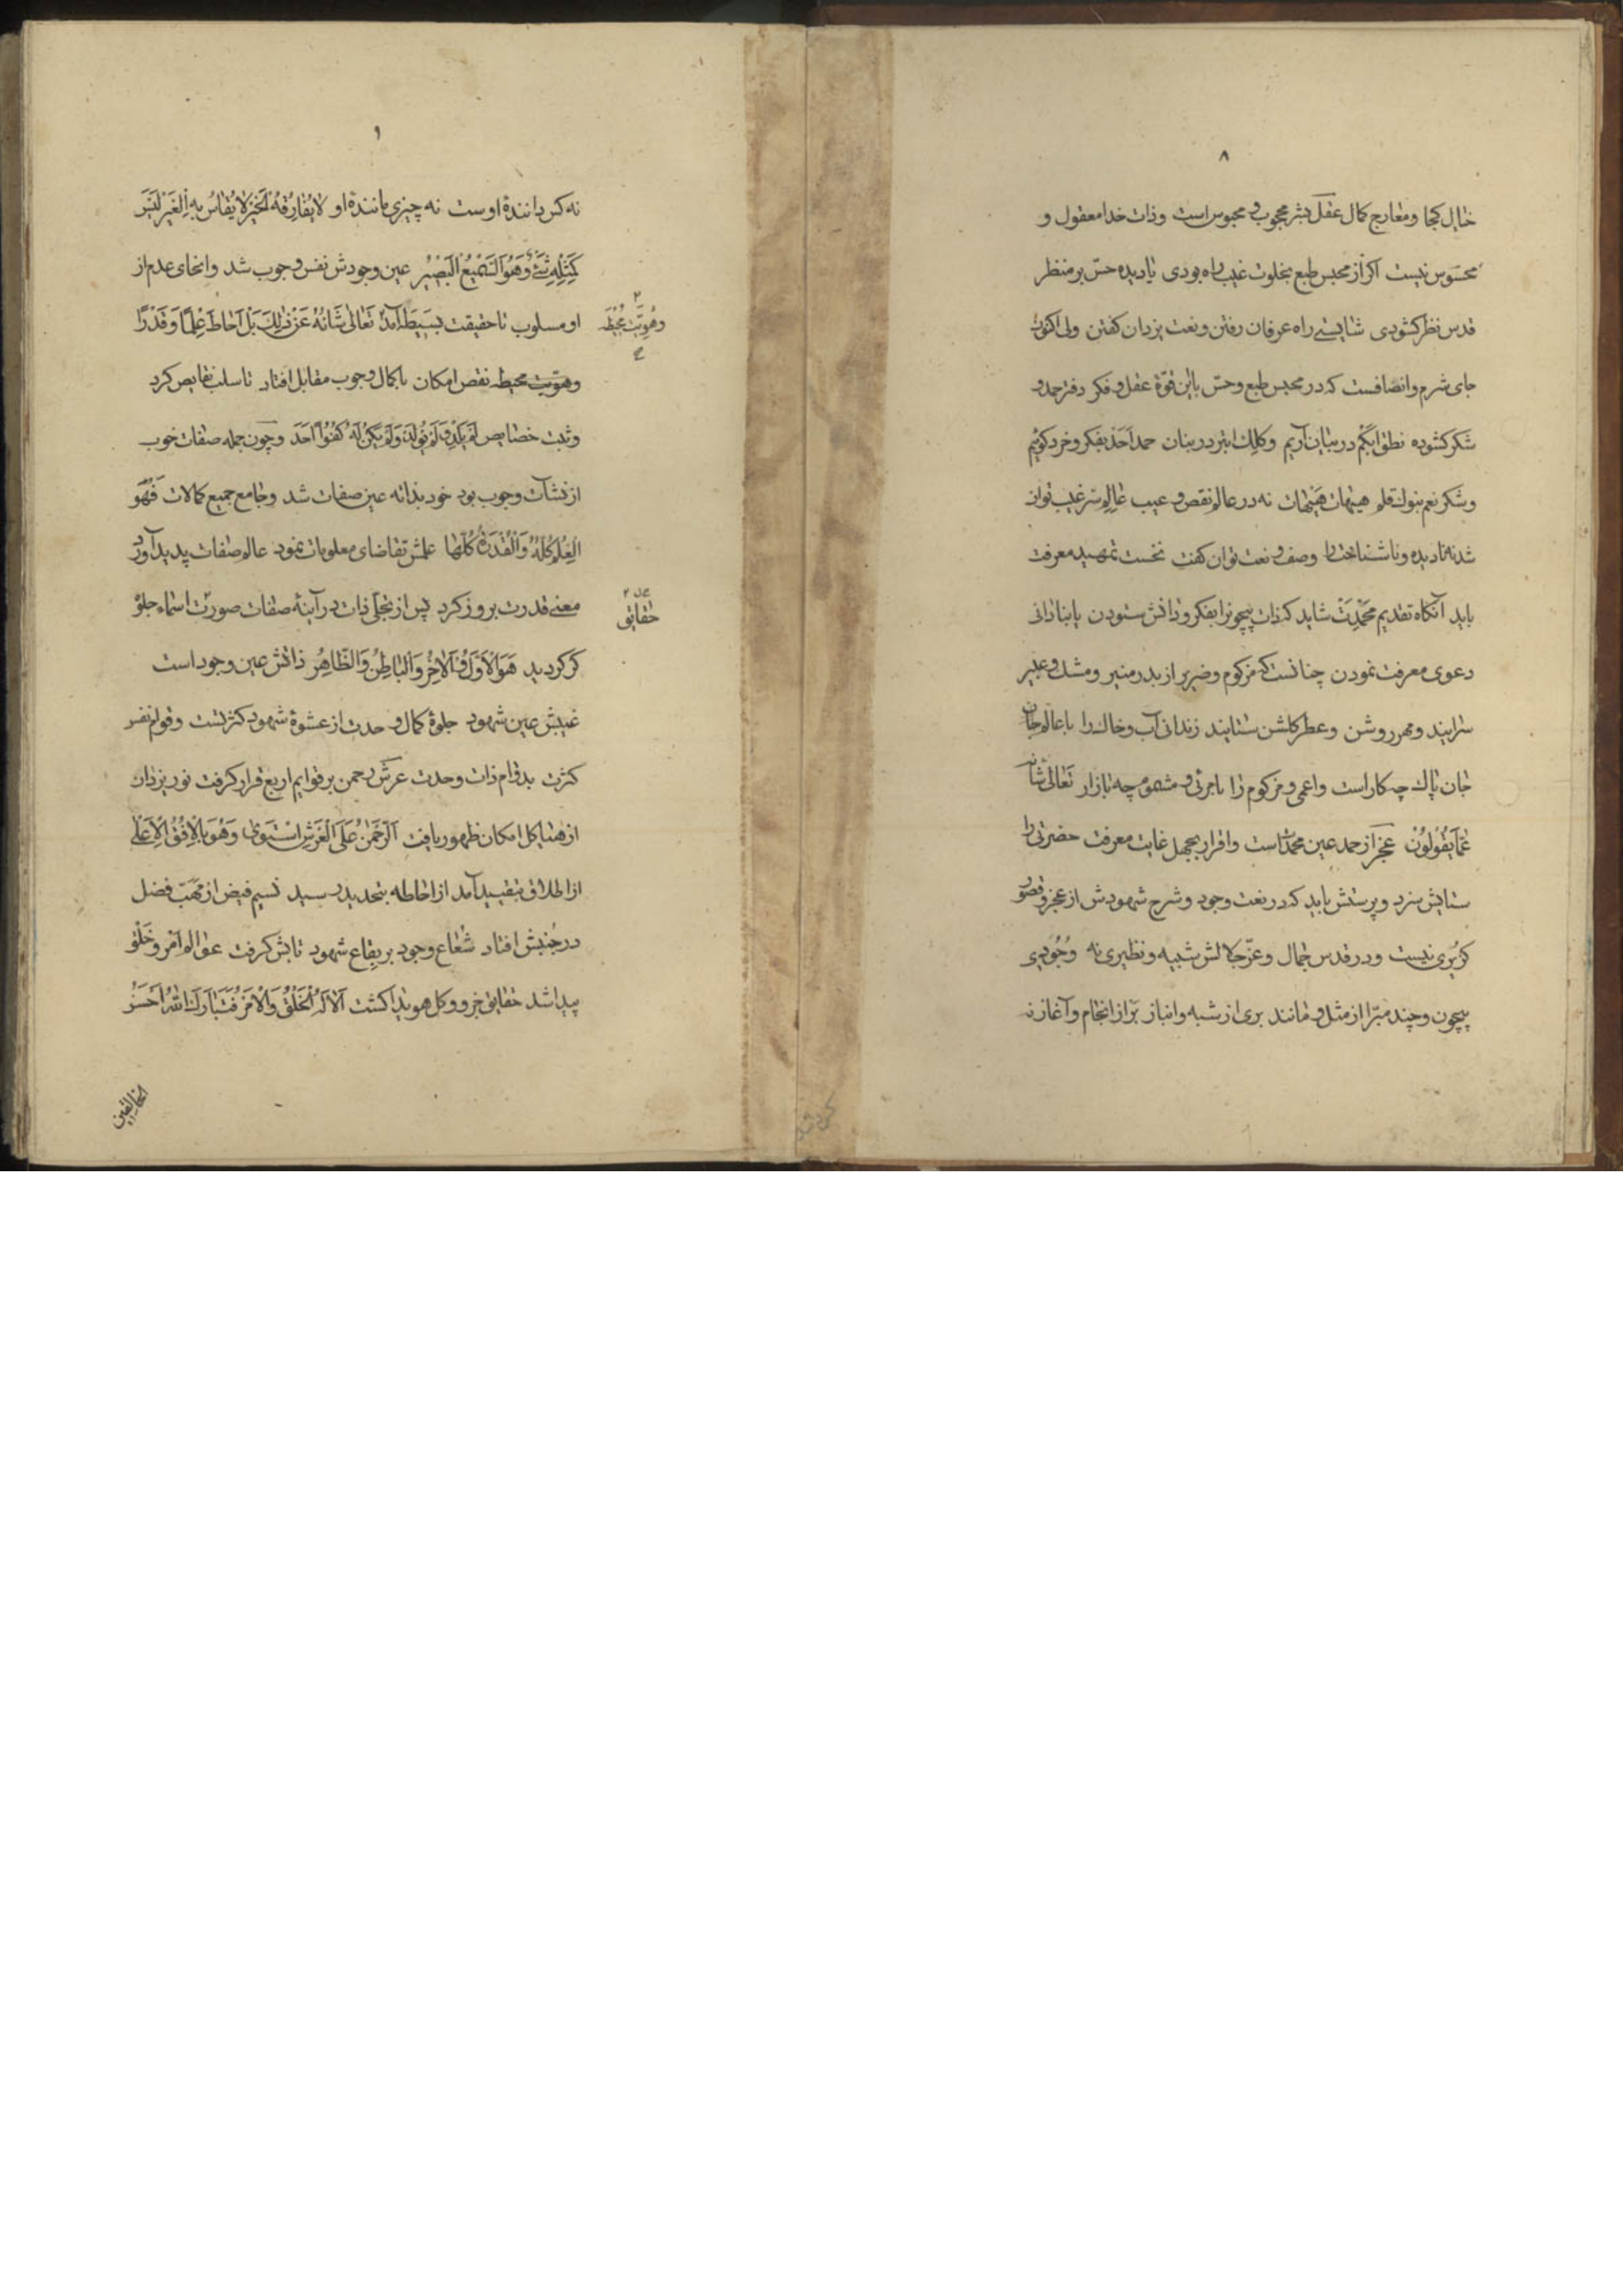 ۸
خیال کجا و معارج کمال عقل بشر محجوب و محبوس است و ذات خدا معقول و
محسوس نیست اگر از محبس طبع بخلوت غیب راه بودی یا دیده حسّ بر منظر
قدس نظر کشودی شایستی راه عرفان رفتن و نعت یزدان کفتن ولی اکنون
جای شرم و انصافست که در محبس طبع و حسّ با این قوّة عقل و فکر دفتر حمد و
شکر کشوده نطق ابکم در بیان آریم و کلک ابتر در بنان حمد احد بفکر و خرد کوئیم
و شکر نعم بنوک قلم هیهات هیهات نه در عالم نقص و عیب عالم سرّ غیب توان
شد نه نادیده و ناشناخت را وصف و نعت توان کفت نخست تمهید معرفت
باید آنکاه تقدیم محمدت شاید که ذات بیچونرا بفکر و دانش ستودن یا بنادانی
دعوی معرفت نمودن چنانست که مزکوم و ضریر از بدر منیر و مشک و عبیر
سرایند و مهر روشن و عطر کلشن ستایند زندانی آب و خاک را با عالم جان
جان پاک چه کار است و اعمی و مزکوم را با مرئی و مشموم چه بازار تَعالیٰ شَانُه
عَمّا یَقُولُونْ عجز از حمد عین محمدت است و اقرار بجهل غایت معرفت حضرتی را
ستایش سزد و پرستش باید که در نعت وجود و شرح شهودش از عجز و قصور
کزیری نیست و در قدس جمال و عزّ جلالش شبیه و نظیری نه وجودی
بیچون و چند مبرّا از مثل و مانند بری از شبه و انباز برتر از انجام و آغاز نه
۹
نه کس دانندۀ اوست نه چیزی مانندۀ او لا یُقارِقُهُ الخَیْر لا یُقاسُ بِه الغَیْر لَیْسَ
کَمِثْلِهِ شَیْءٌ وَهُوَ السَّمِیعُ الْبَصِیرُ عین وجودش نفس وجوب شد و انحای عدم از
او مسلوب تا حقیقت بسیطه آمد تَعالیٰ شَانُهُ عَنْ ذٰلِکَ بَلْ اَحاطَ عِلْمًا وَ قَدْرًا
وهویّت محیطه
وهویّت محیطه نقص امکان با کمال وجوب مقابل افتاد تا سلب نقایص کرد
و ثبت خصایص لَمْ یَلِدْ وَ لَمْ یُولَدْ وَلَمْ یَکُنْ لَهُ کُفُوًا اَحَد و چون جمله صفات خوب
از نشآت وجوب بود خود بذاته عین صفات شد و جامع جمیع کمالات فَهُوَ
الْعِلْمُ کُلُّهُ وَ الْقُدْرَةُ کُلُّهَا علمش تقاضای معلومات نمود عالم صفات پدید آورد
معنی قدرت بروز کرد پس از تجلّی ذات در آینۀ صفات صورت اسماء جلوه
حقایق
کر کردید هُوَ الْاَوَّلُ وَ الْاخِرُ وَ الْبَاطِنُ وَ الظّاهِرُ ذاتش عین وجود است
غیبش عین شهود جلوۀ کمال و حدت از عشوۀ شهود کثرتست و قوام نفس
کثرت بدوام ذات وحدت عرش رحمن بر قوایم اربع قرار کرفت نور یزدان
از هیاکل امکان ظهور یافت اَلرَّحْمٰنُ عَلَی الْعَرْشِ اسْتَوَیٰ وَ هُوَ بِالْاُفُقِ الْاَعْلیٰ
از اطلاق بتقیید آمد از احاطه بتحدید رسید نسیم فیض از مهبّ فضل
در جنبش افتاد شعاع وجود بر بقاع شهود تابش کرفت عوالم امر و خلق
پیدا شد حقایق جزو و کل هویدا کشت اَلا لَهُ الْخَلْقُ وَ الْاَمْرُ فَتَبَارَکَ اللهُ اَحْسَنُ
الخالقین